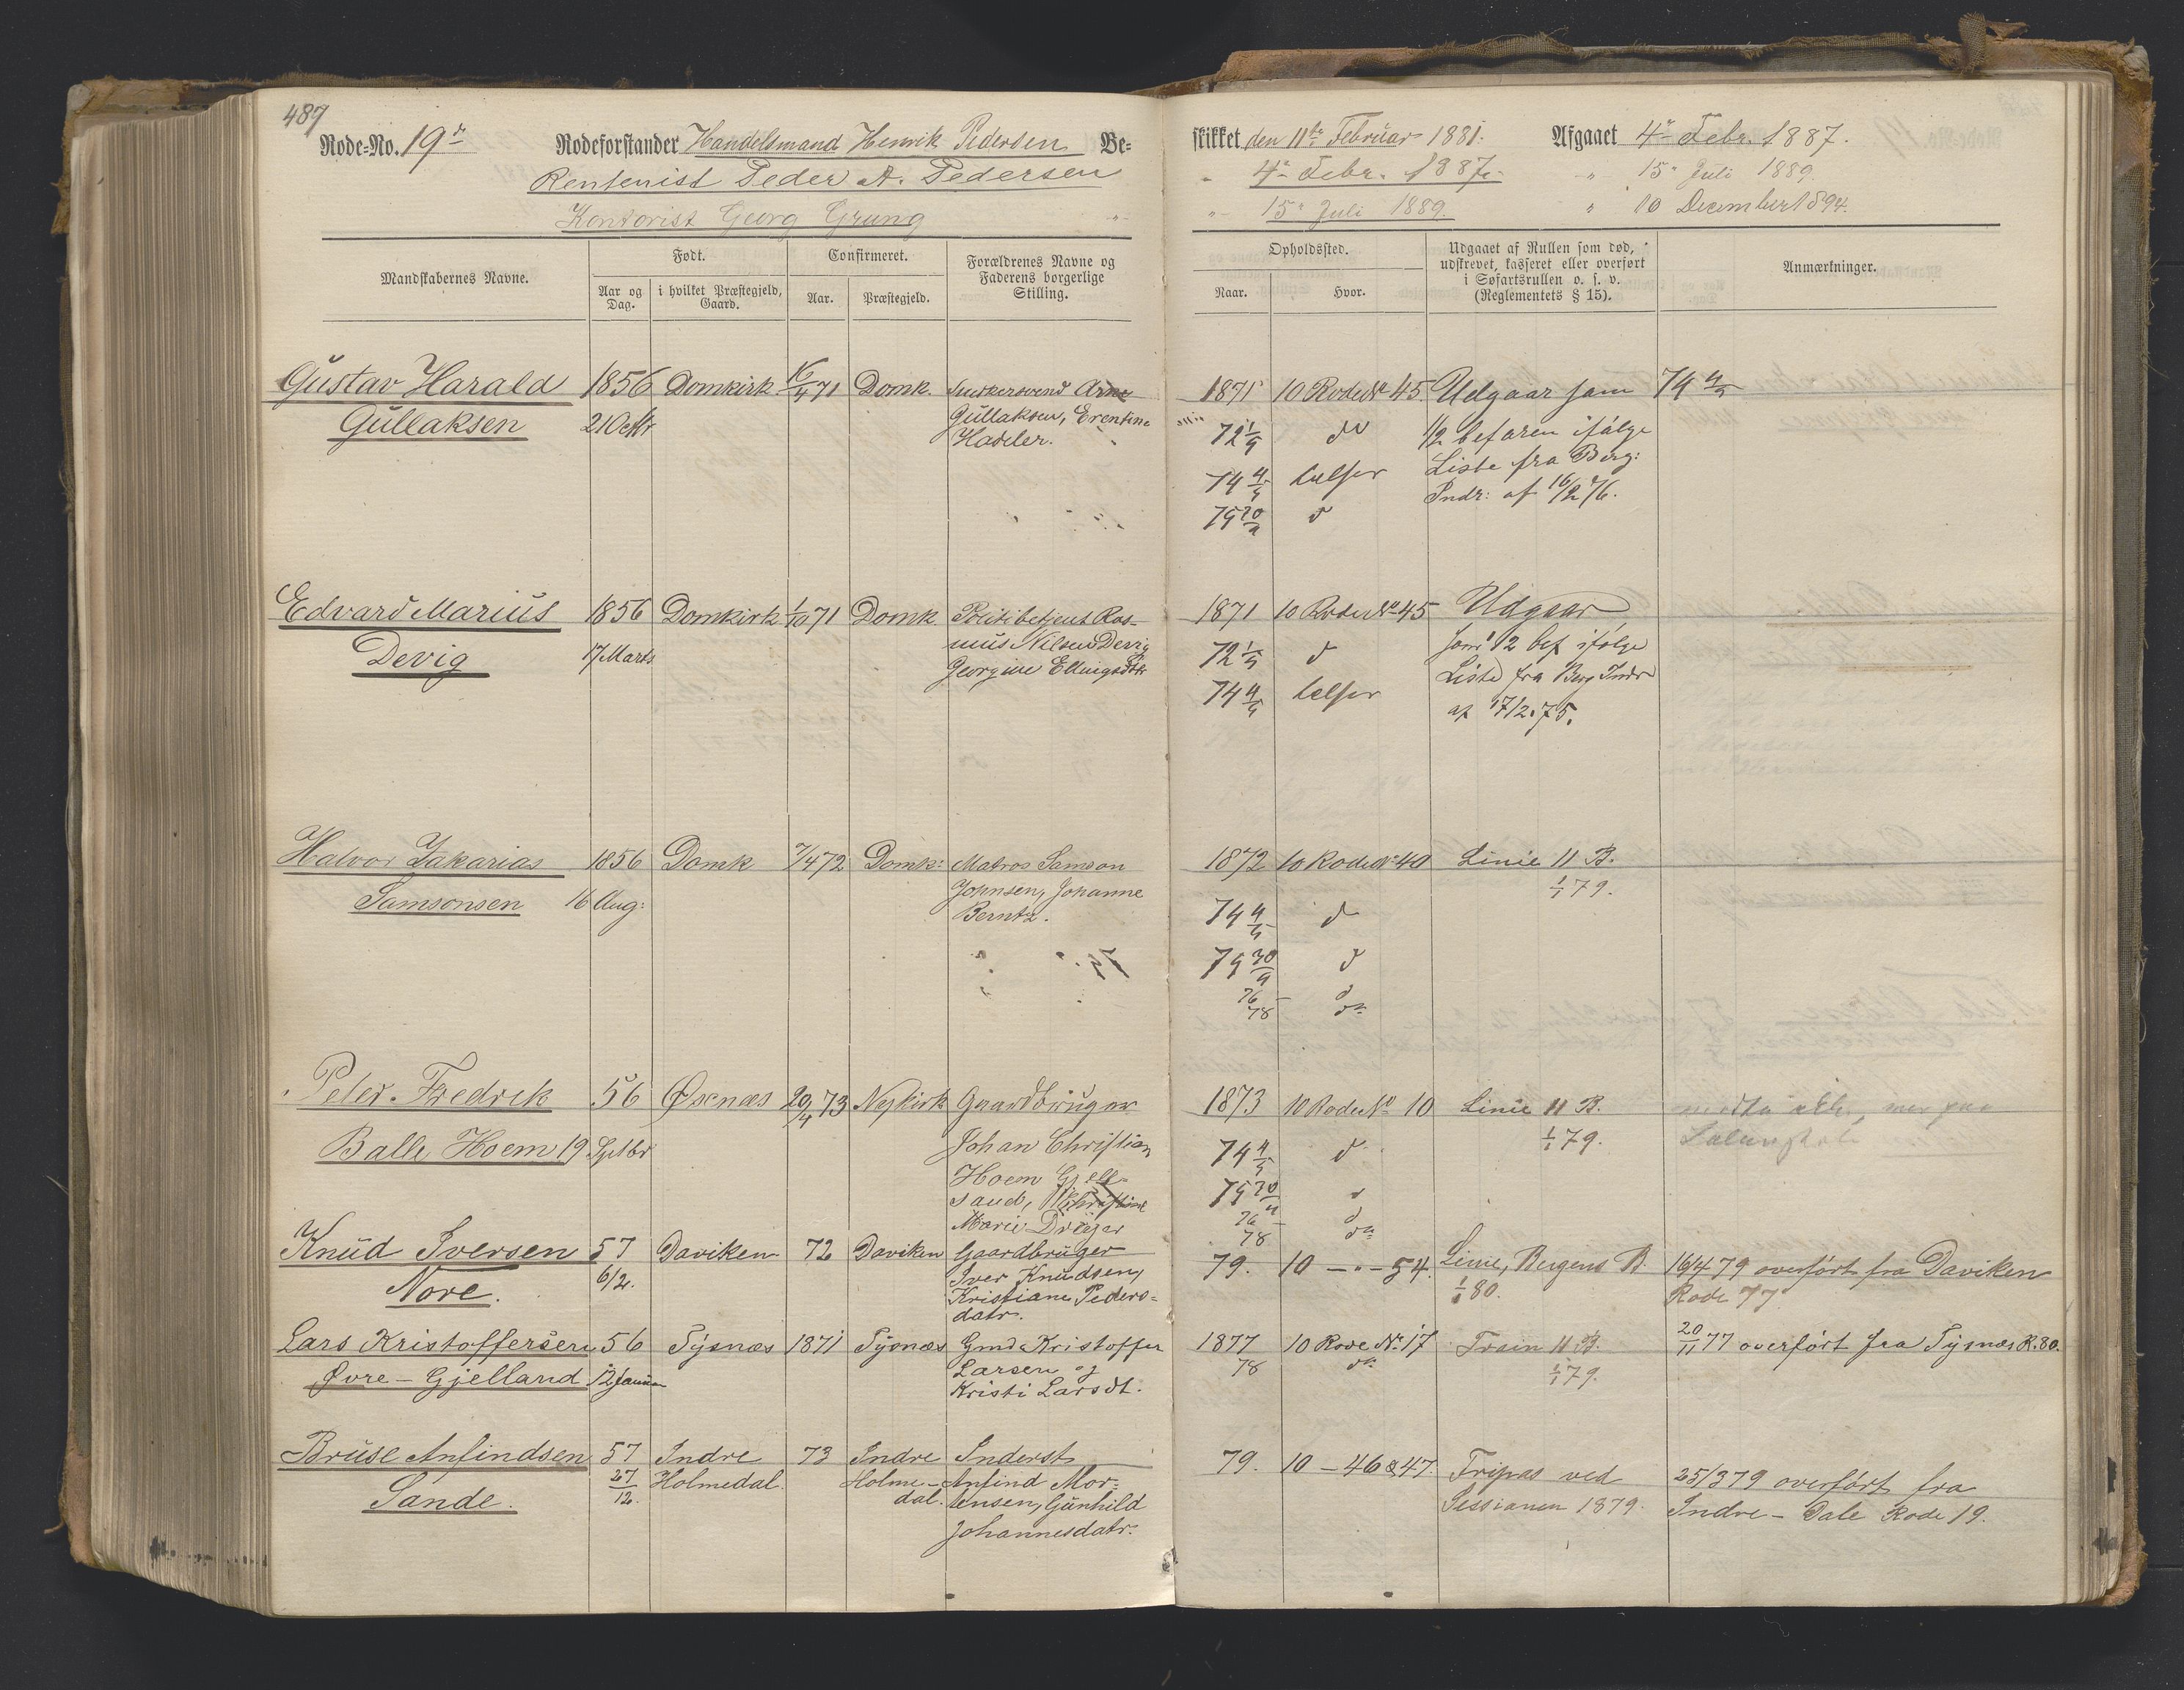 489
Rode-No. 19de Rodeforstander Handelsmand Henrik Pedersen Be-
Rentenist Peder A. Pedersen
Kontorist Georg Grung "
skikket den 11te Februar 1881. Afgaaet 4de Febr. 1887.
" 4de Febr. 1887. " 15de Juli 1889.
" 15de Juli 1889. " 10 December 1894.
Mandskabernes Navne.
Født.
Aar og Dag.
i hvilket Præstegjeld, Gaard.
Confirmeret.
Aar.
Præstegjeld.
Forældrenes Navne og
Faderens borgerlige
Stilling.
Opholdssted.
Naar.
Hvor.
Udgaaet af Rullen som død,
udskrevet, kasseret eller overført
i Søfartsrullen o. s. v.
(Reglementets § 15).
Anmærkninger.
Gustav Harald 1856 Domkirk 16/4 71 Domk. Snedkersvend Arne
Gullaksen 21 Octbr Gullaksen, Erentine
Hasler.
1871 10 Rode No 45 Udgaar som 74 4/5
72 1/9 do 1/2 befaren ifølge
74 4/5 Liste fra Berg:
75 20/9 d Indr: af 16/2 76.
Edvard Marius 1856 Domkirk 1/10 71 Domk Politibetjent Ras-
Devig 17 Marts mus Nilsen Devig
Georgine Ellingsdtr
1871 10 Rode No 45 Udgaar
72 1/9 d som 1/2 bef ifølge
74 4/5 Liste fra Berg Indr
af 17/2 75.
Halvor Zakarias 1856 Domk 7/4 72 Domk: Matros Samson
Samsonsen 16 Aug: Johnsen, Johanne
Berntz.
1872 10 Rode No 40 Linie 11 B.
74 4/5 d 1/1 79.
75 20/9 d
76 d
78 do
Peter Fredrik 56 Øxnæs 20/4 73 Nykirk Gaardbruger
Balle Hoem 19 Septbr Johan Christian
Hoem
Marie
1873 10 Rode No 10 Linie 11 B.
74 4/5 d 1/1 79.
75 d
76 d
78 do
Knud Iversen 57 Daviken 72 Daviken Gaardbruger
Nore. 6/2. Iver Knudsen,
Kristiane Peders-
datr.
79. 10 — " — 54. Linie, Bergens B. 16/4 79 overført fra Daviken
1/1 80. Rode 77
Lars Kristoffersen 56 Tysnæs 1871 Tysnæs Gmd Kristoffer
Øvre-Gjelland 12 Januar Larsen og
Kristi Larsdt.
1877 10 Rode No 17 Train 11 B. 20/11 77 overført fra Tysnæs R. 80.
78 do 1/1 79.
Bruse Anfindsen 57 Indre 73 Indre Inderst
Sande. 27/12. Holmedal. Holme- Anfind Mor-
dal. tensen, Gunhild
Johannesdatr.
79. 10 — 46 & 47. Fripas ved 25/3 79 overført fra
Sessionen 1879. Indre-Dale Rode 19.